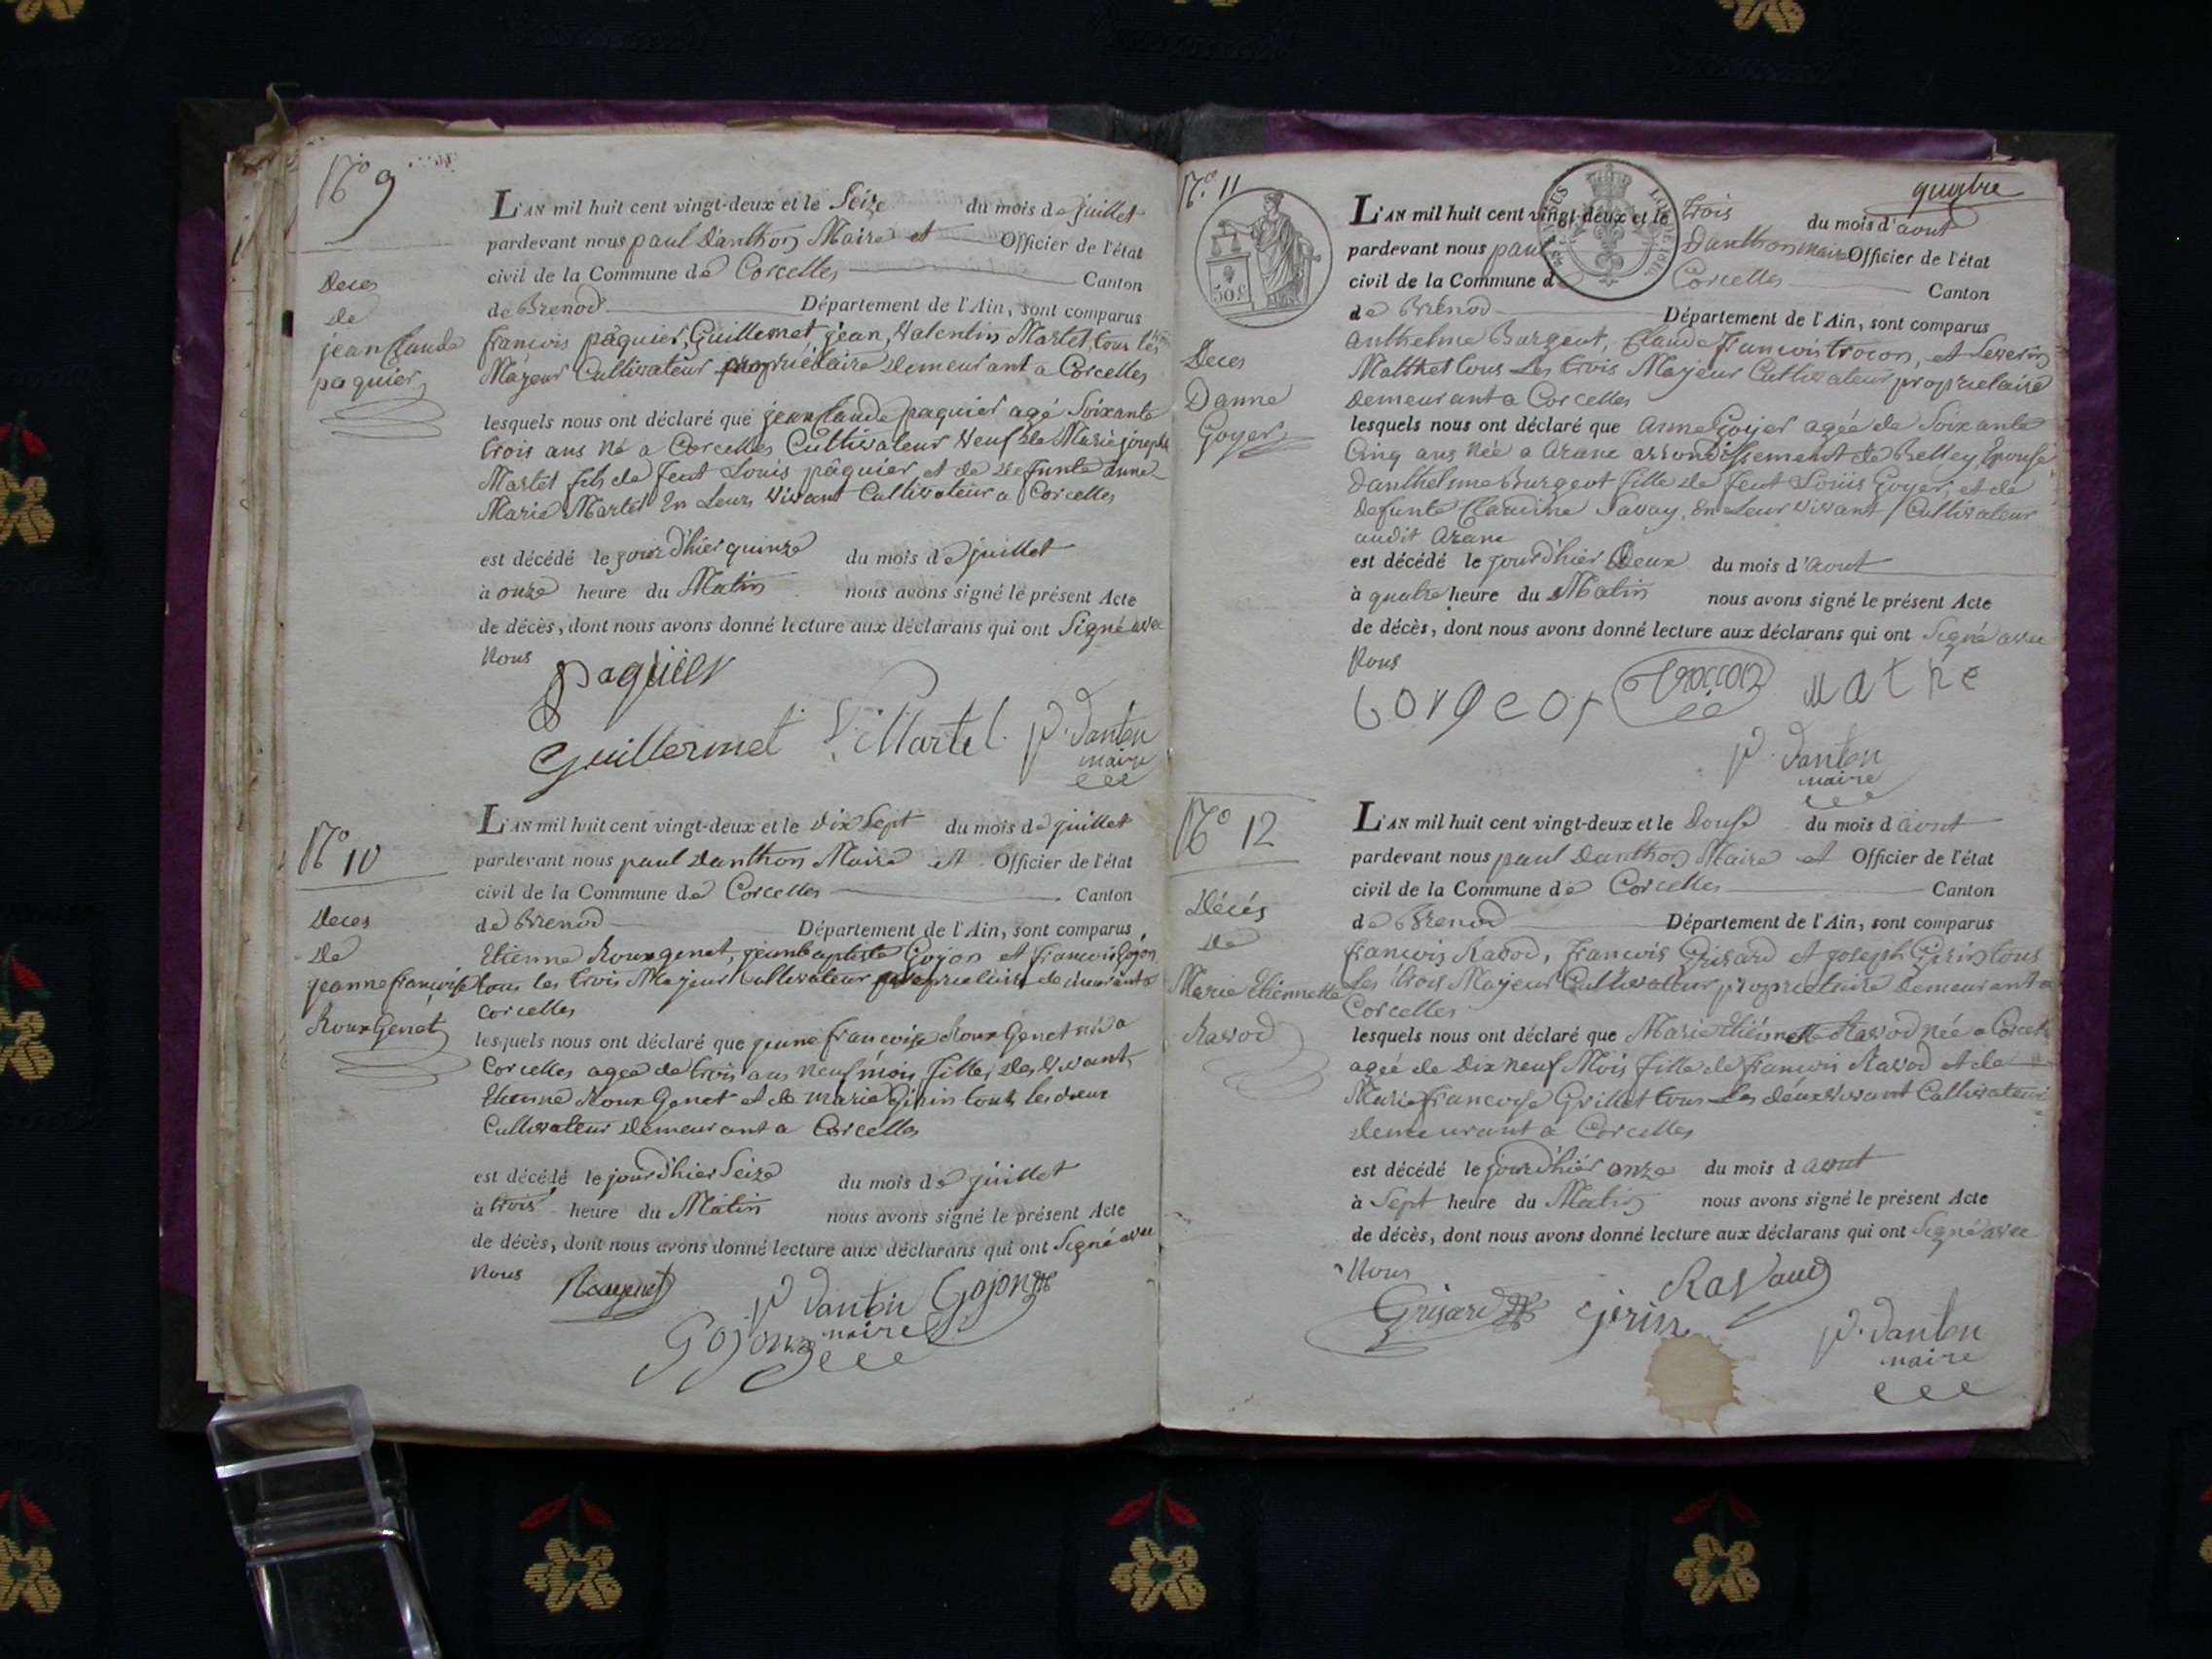 N.o 9
Deces
de
jean Claude
paquier
L'AN mil huit cent vingt-deux et le Seize du mois de juillet
pardevant nous paul Danthon Maire et Officier de l'état
civil de la Commune de Corcelles Canton
de Brenod Département de l'Ain, sont comparus
francois pâquier, Guillemet, jean, Valentin Martel, tous les
Majeur Cultivateur proprietaire Demeurant a Corcelles
lesquels nous ont déclaré que jean Claude paquier agé Soixante
trois ans né a Corcelles Cultivateur Veuf de Marie josephe
Martel fils de feut Louis pâquier et de Defunte anne
Marie Martel En Leurs Vivant Cultivateur a Corcelles
est décédé le jour d'hier quinze du mois de juillet
à onze heure du Matin nous avons signé le présent Acte
de décès, dont nous avons donné lecture aux déclarans qui ont Signé avec
Nous
paquier
Guillermet V. Martel P. Danton
maire
N.o 10
Deces
De
jeanne françoise
Roux Genet
L'AN mil huit cent vingt-deux et le dix Sept du mois de juillet
pardevant nous paul Danthon Maire et Officier de l'état
civil de la Commune de Corcelles Canton
de Brenod Département de l'Ain, sont comparus
Etienne Rouxgenet, jeanbaptiste Gojon et francois Gojon
tous les trois Majeur Cultivateur proprietaire demeurant a
Corcelles
lesquels nous ont déclaré que jeanne francoise Roux Genet né a
Corcelles agée de trois ans neuf mois fille, des Vivant
Etienne Roux Genet et de marie Girin tous les deux
Cultivateur Demeurant a Corcelles
est décédé le jour d'hier Seize du mois de juillet
à trois heure du Matin nous avons signé le présent Acte
de décès, dont nous avons donné lecture aux déclarans qui ont Signé avec
Nous
Rouxgenet P Danton Gojon
Gojon maire
N.o 11
quatre
50 c
Deces
Danne
Goyer
L'AN mil huit cent vingt-deux et le trois du mois d'aout
pardevant nous paul Danthon maire Officier de l'état
civil de la Commune de Corcelles Canton
de Brenod Département de l'Ain, sont comparus
Anthelme Burgeot, Claude francois trocon, et Severin
Matthet tous Les trois Majeur Cultivateur proprietaire
Demeurant a Corcelles
lesquels nous ont déclaré que anne Goyer agée de Soixante
Cinq ans Née a Arane arrondissement de Belley, Epouse
Danthelme Burgeot fille de feut Louis Goyer, et de
Defunte Claudine Savay, En Leur Vivant Cultivateur
audit Arane
est décédé le jour d'hier Deux du mois d'aout
à quatre heure du Matin nous avons signé le présent Acte
de décès, dont nous avons donné lecture aux déclarans qui ont Signé avec
Nous
borgeot Troccon mathe
P. Danton
maire
N.o 12
Décés
De
Marie Etiennette
Ravod
L'AN mil huit cent vingt-deux et le Douse du mois d'aout
pardevant nous paul Danthon Maire et Officier de l'état
civil de la Commune de Corcelles Canton
de Brenod Département de l'Ain, sont comparus
francois Ravod, francois Grisard et joseph Girin tous
Les trois Majeur Cultivateur proprietaire Demeurant a
Corcelles
lesquels nous ont déclaré que Marie Etiennette Ravod née a Corcelle
agée de Dix neuf Mois fille de francois Ravod et de
Marie francoise Grillet tous Les deux Vivant Cultivateur
Demeurant a Corcelles
est décédé le jour d'hier onze du mois d'aout
à Sept heure du Matin nous avons signé le présent Acte
de décès, dont nous avons donné lecture aux déclarans qui ont Signé avec
Nous
Grisard Girin Ravaud
P. Danton
maire